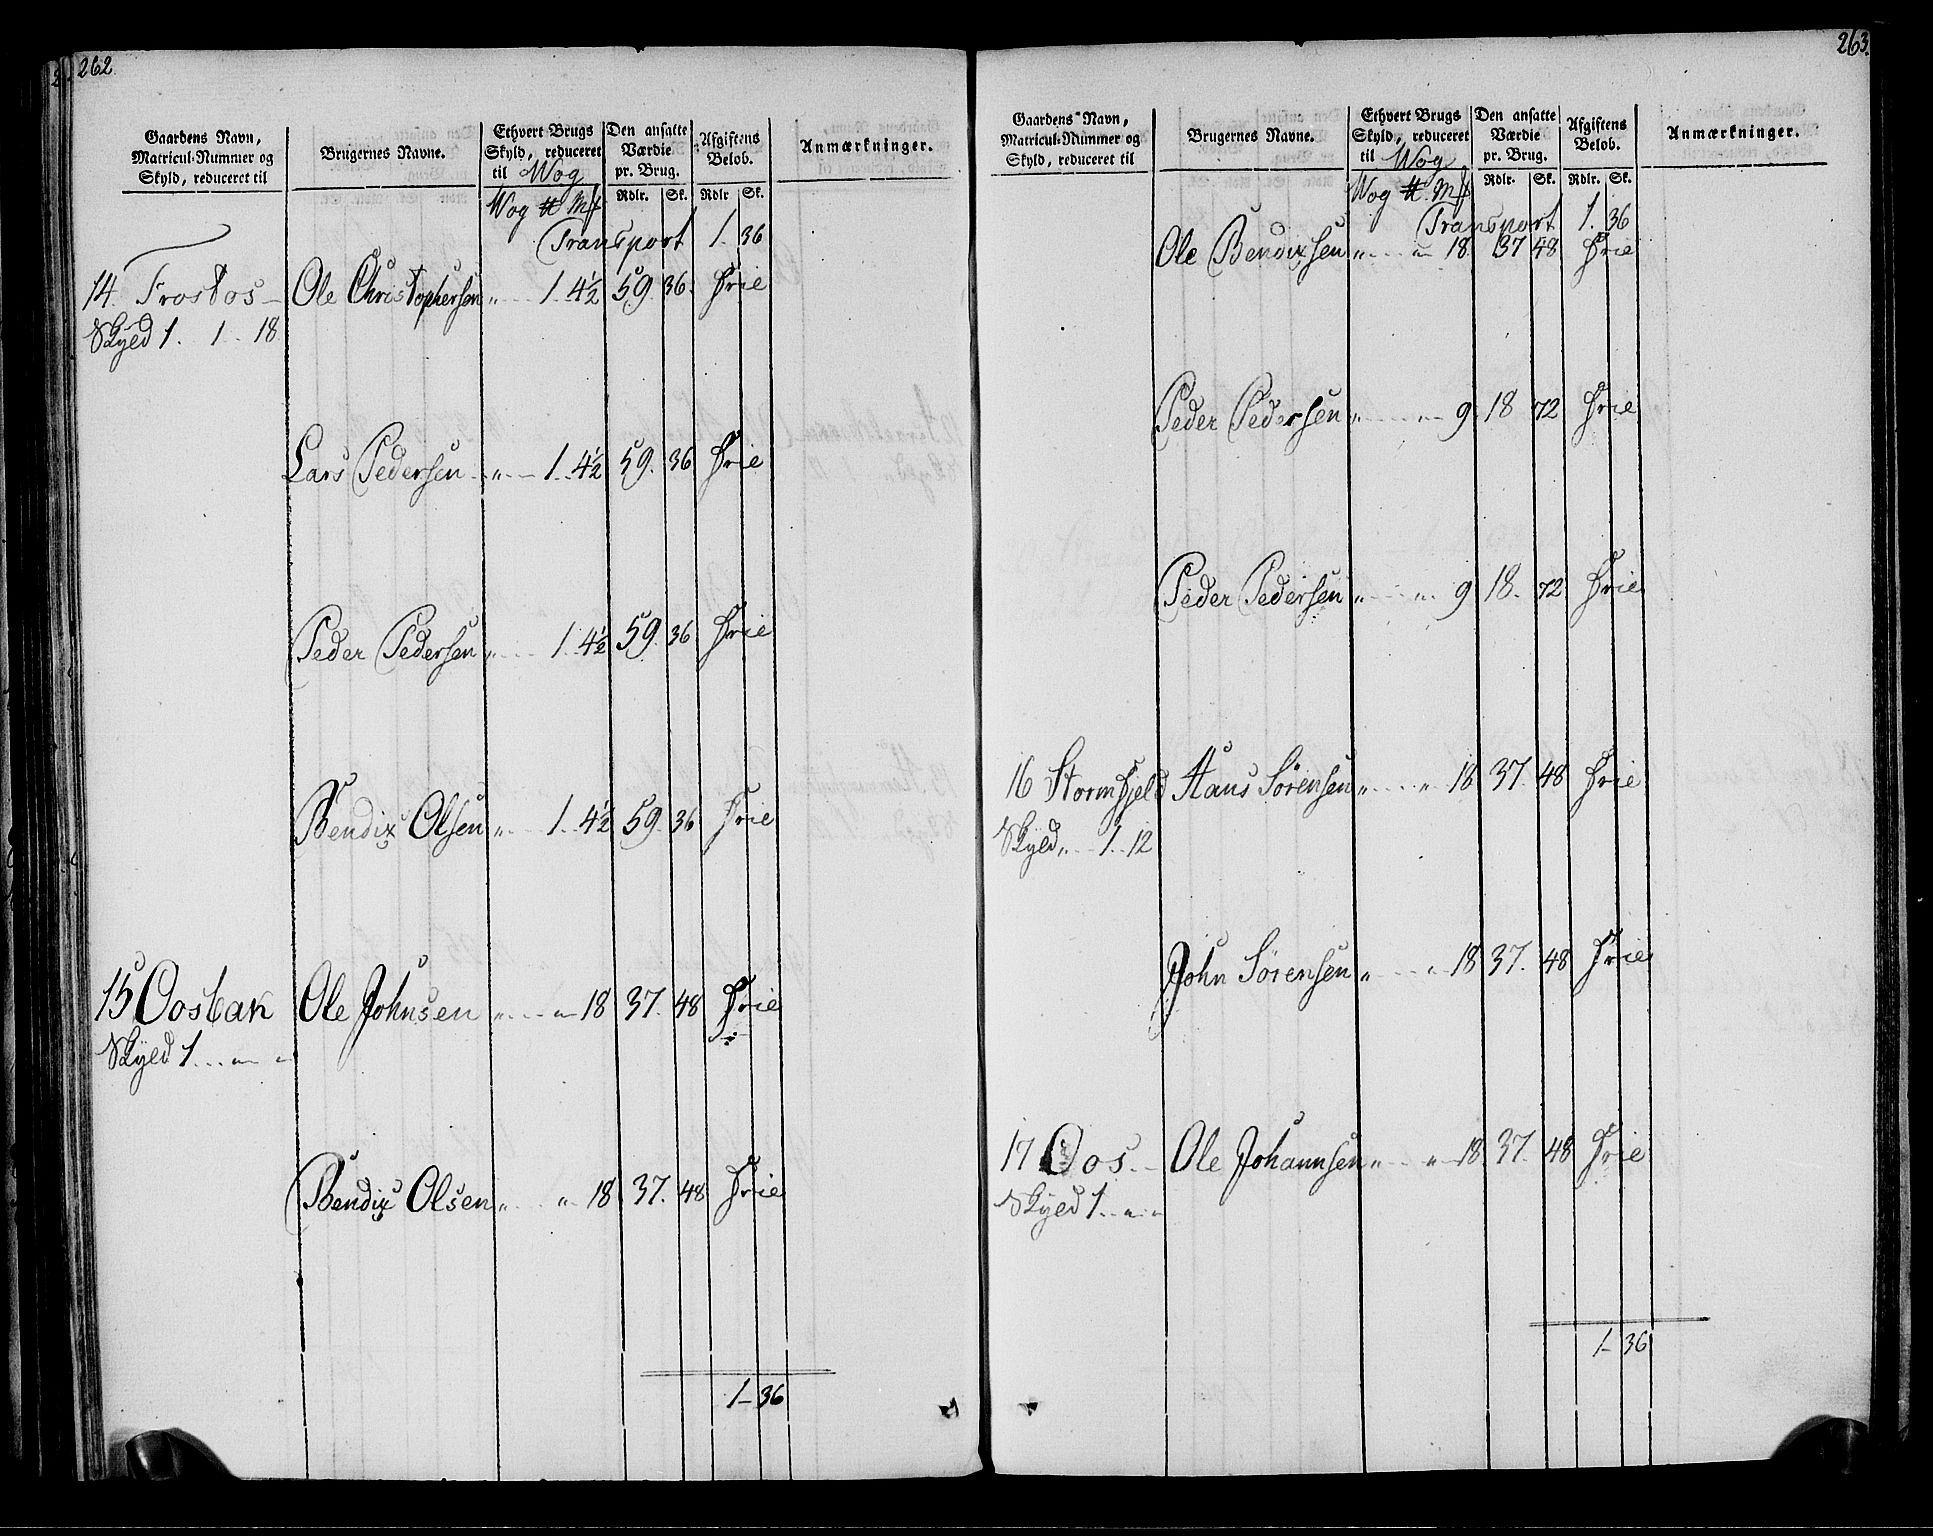 262
Gaardens Navn, Matricul-Nummer og Skyld, reduceret til
Brugernes Navne.
Ethvert Brugs Skyld, reduceret til Wog
Den ansatte Værdie pr. Brug.
Afgiftens Belob.
Anmærkninger.
Wog ℔ Mk Rdlr. Sk. Rdlr Sk.
Transport 1. 36
14. Frostos Ole Christophersen „ 1. 4½ 59. 36. Frie
Skyld 1. 1. 18
Lars Pedersen „ 1. 4½ 59. 36 Frie
Peder Pedersen „ 1. 4½ 59. 36 Frie
Bendix Olsen „ 1. 4½ 59. 36 Frie
15 Oosbak Ole Johnsen „ „ 18 37. 48 Frie
Skyld 1 „ „
Bendix Olsen „ „ 18 37. 48 Frie
1 – 36
263.
Gaardens Navn, Matricul-Nummer og Skyld, reduceret til
Brugernes Navne.
Ethvert Brugs Skyld, reduceret til Wog
Den ansatte Værdie pr. Brug.
Afgiftens Belob.
Anmærkninger.
Wog ℔ Mk Rdlr. Sk. Rdlr. Sk.
Transport 1. 36
Ole Bendixsen „ „ 18 37 48 Frie
Peder Pedersen „ „ 9 18 72 Frie
Peder Pedersen „ „ 9 18. 72 Frie
16 Stormfjeld Hans Sörensen „ „ 18 37. 48 Frie
Skyld „ 1. 12
John Sörensen „ „ 18 37. 48 Frie
17 Oos Ole Johannsen „ „ 18 37. 48 Frie
Skyld 1 „ „
1 – 36